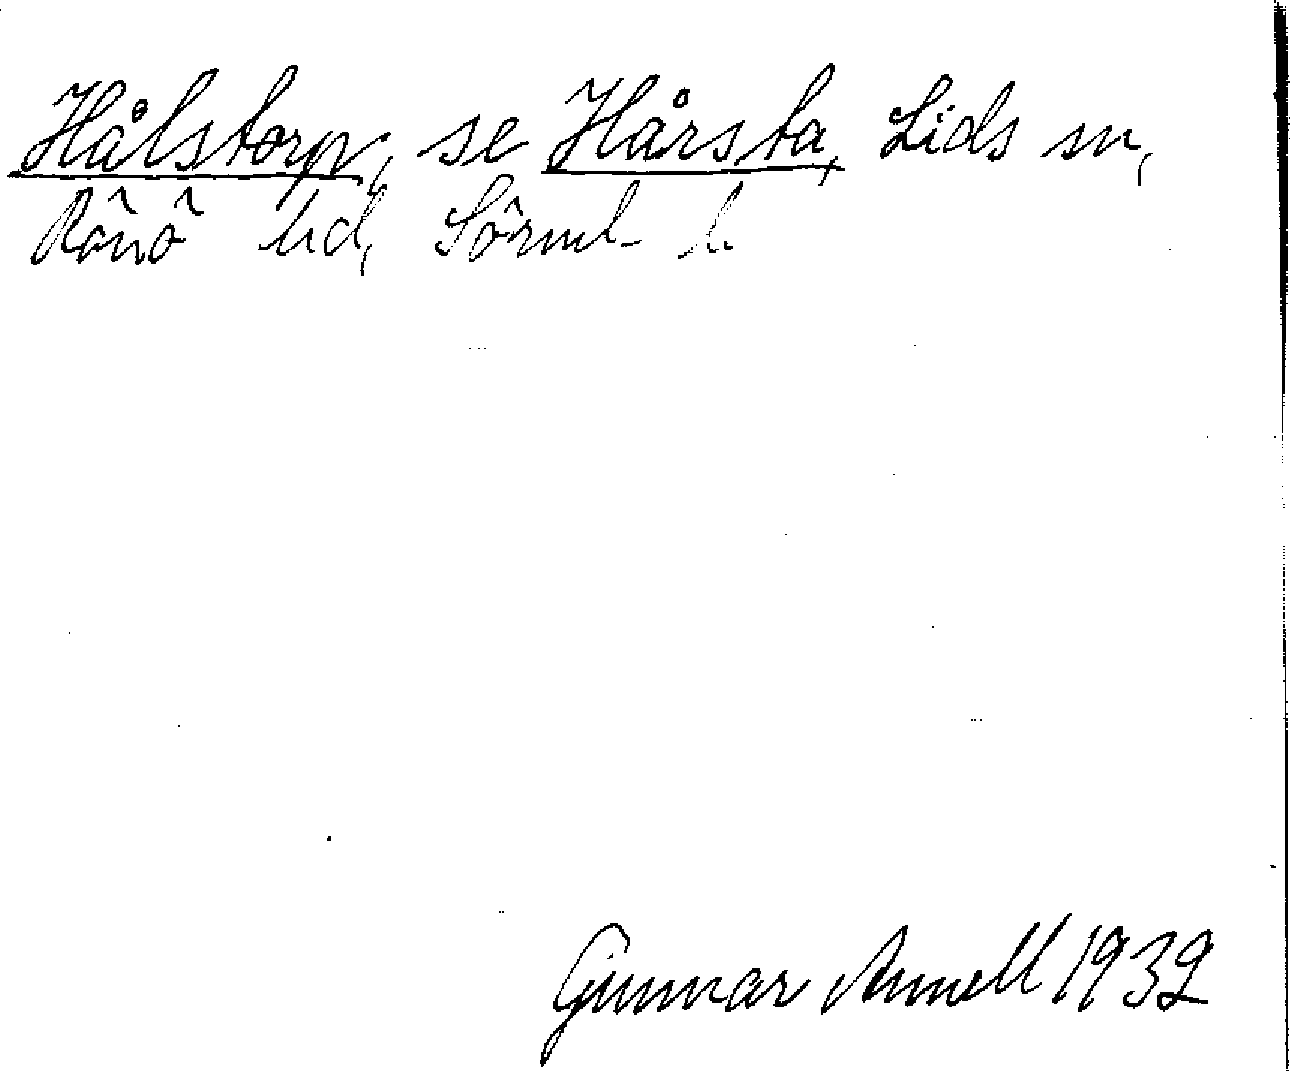 Hålstorp, se Hårsta, Lids sn,
Rönö hd, Sörml. l.
Gunnar Annell 1932